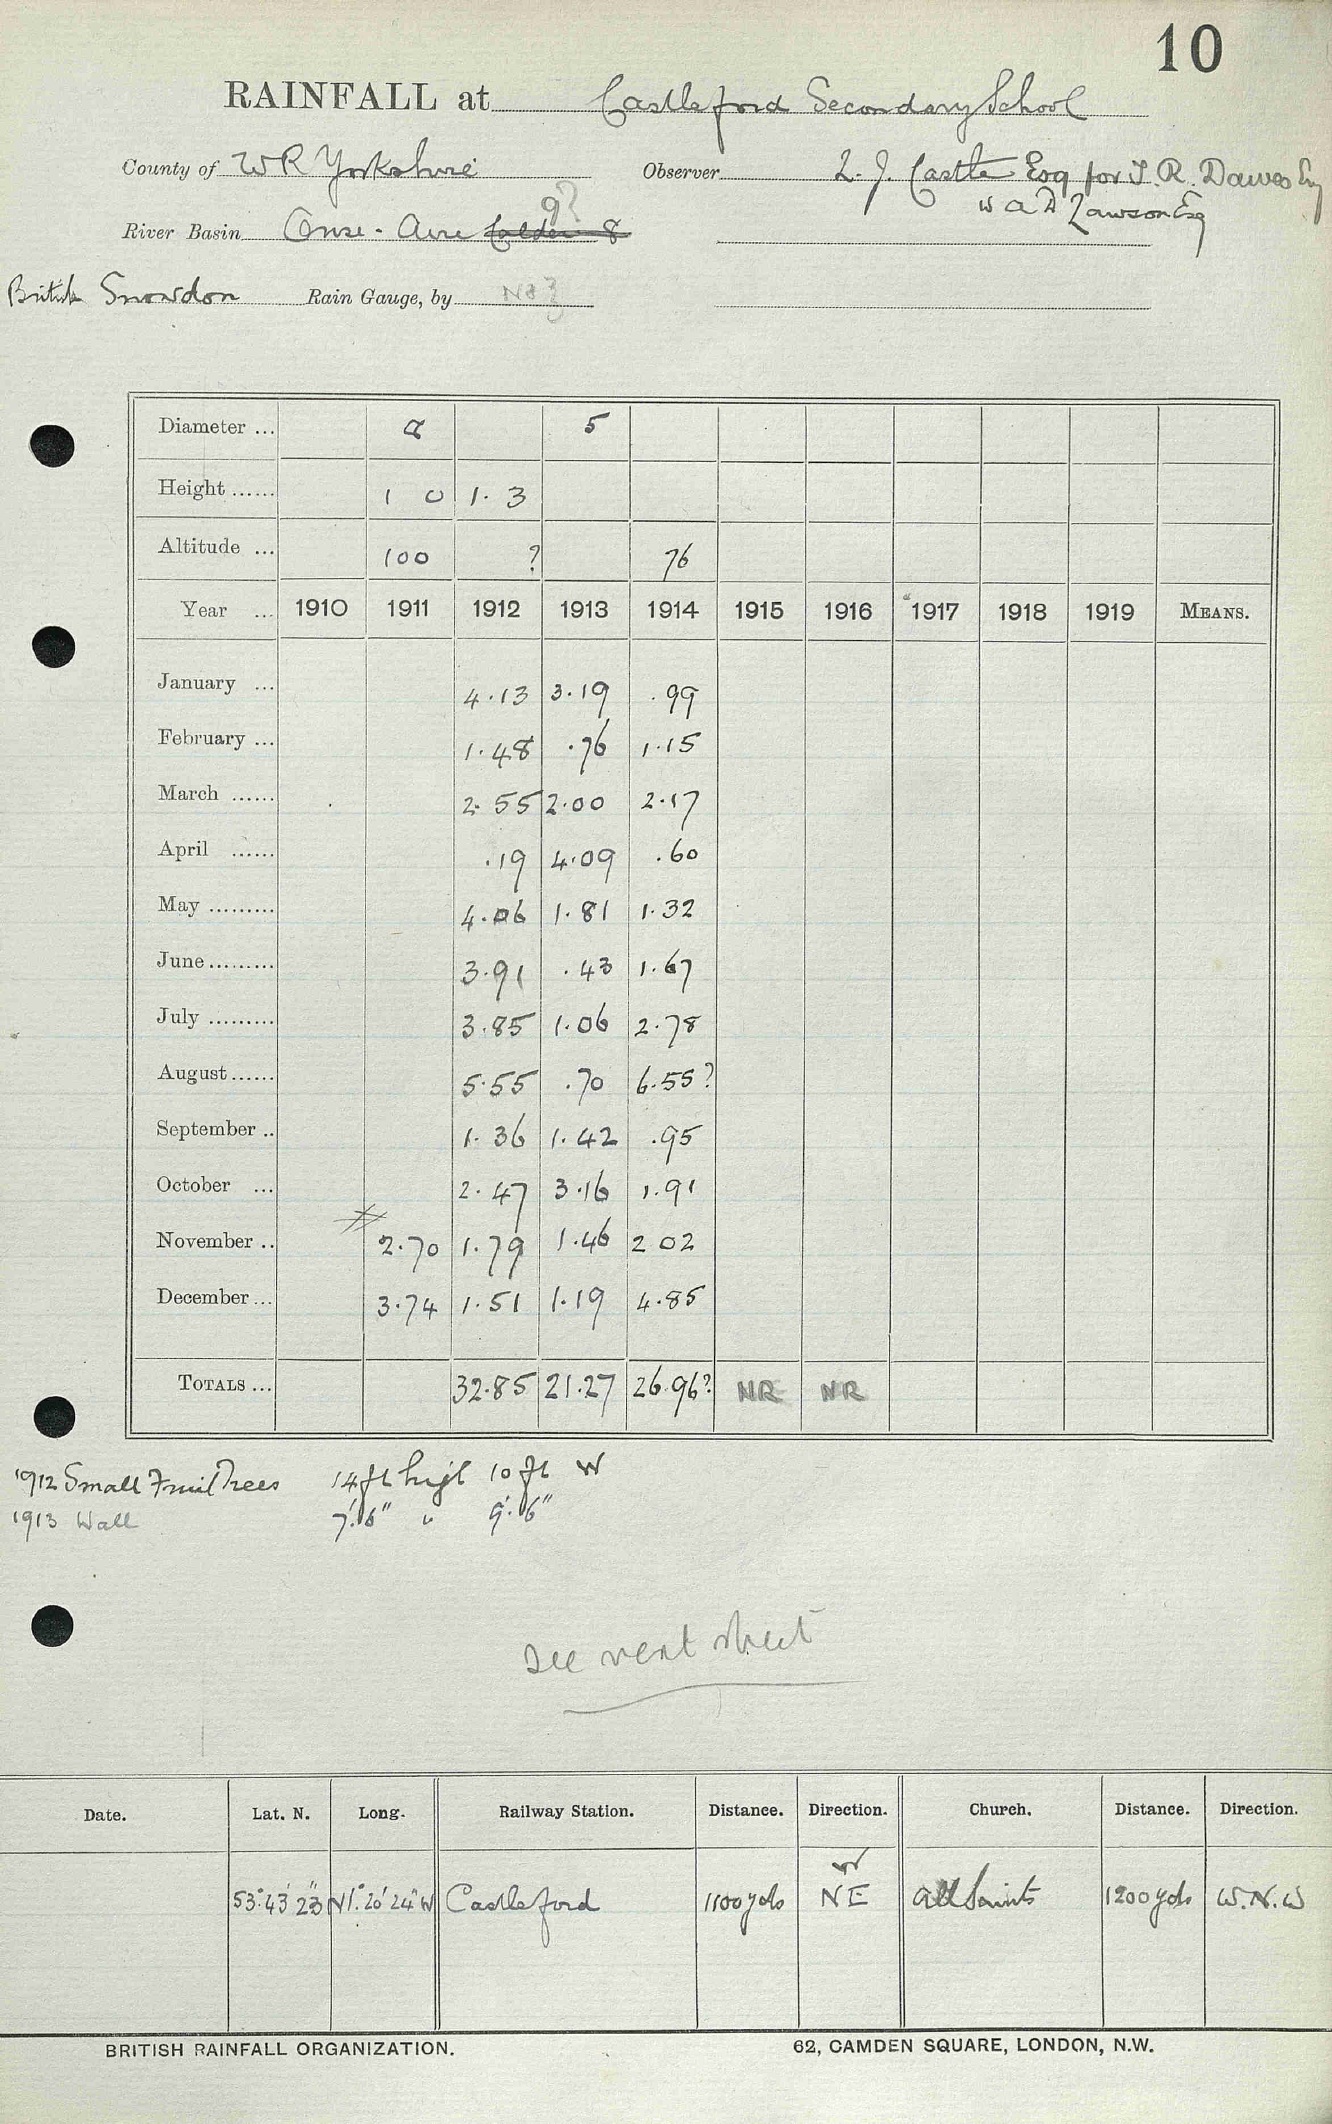 10
RAINFALL at Castleford Secondary School
County of W R Yorkshire Observer L. J. Castle Esq for T. R. Dawes Esq
W A D Lawson Esq
9?
River Basin Ouse - Aire Calder 8
British Snowdon Rain Gauge, by No 3
Diameter ... 8 5
Height ...... 1 0 1.3
Altitude ... 100 ? 76
Year ... 1910 1911 1912 1913 1914 1915 1916 1917 1918 1919 MEANS.
January ... 4.13 3.19 .99
February ... 1.48 .76 1.15
March ...... 2.55 2.00 2.17
April ...... .19 4.09 .60
May ......... 4.06 1.81 1.32
June ......... 3.91 .43 1.67
July ......... 3.85 1.06 2.78
August ...... 5.55 .70 6.55?
September .. 1.36 1.42 .95
October ... 2.47 3.16 1.91
November .. 2.70 1.79 1.46 2 02
December ... 3.74 1.51 1.19 4.85
TOTALS ... 32.85 21.27 26.96? NR NR
1912 Small Fruit Trees 14 ft high 10 ft W
1913 Wall 7'.6" " 9'.6"
See next sheet
Date. Lat. N. Long. Railway Station. Distance. Direction. Church. Distance. Direction.
W
53°43'23" N 1°.20'24" W Castleford 1100 yds NE All Saints 1200 yds W.N.W
BRITISH RAINFALL ORGANIZATION. 62, CAMDEN SQUARE, LONDON, N.W.